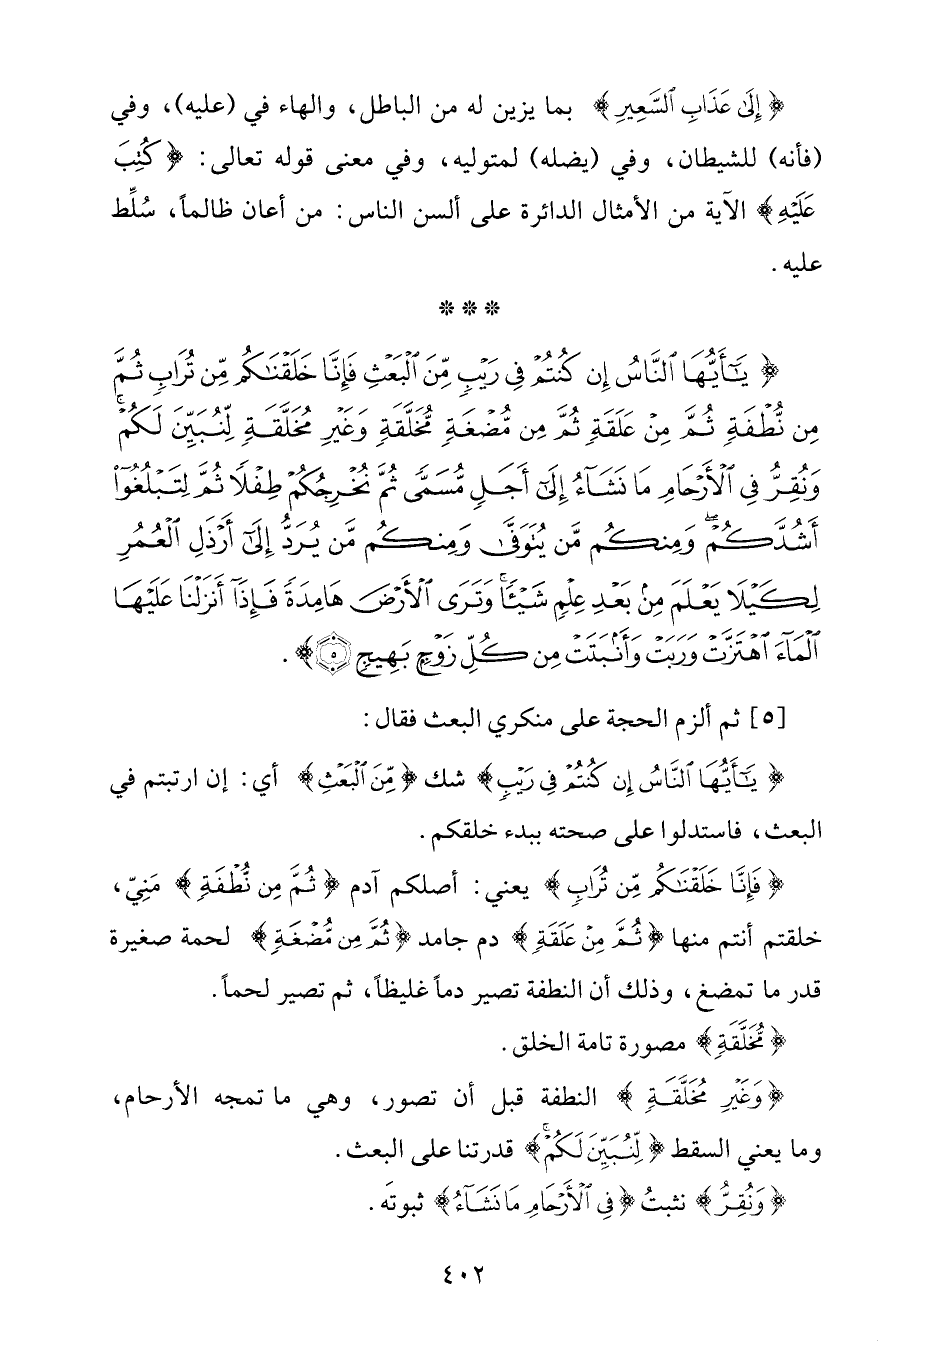 ﴿إِلَىٰ عَذَابِ ٱلسَّعِيرِ﴾ بما يزين له من الباطل، والهاء في (عليه)، وفي
(فأنه) للشيطان، وفي (يضله) لمتوليه، وفي معنى قوله تعالى: ﴿كُتِبَ
عَلَيْهِ﴾ الآية من الأمثال الدائرة على ألسن الناس: من أعان ظالماً، سُلِّط
عليه.
* * *
﴿يَٰٓأَيُّهَا ٱلنَّاسُ إِن كُنتُمْ فِي رَيْبٍ مِّنَ ٱلْبَعْثِ فَإِنَّا خَلَقْنَٰكُم مِّن تُرَابٍ ثُمَّ
مِن نُّطْفَةٍ ثُمَّ مِنْ عَلَقَةٍ ثُمَّ مِن مُّضْغَةٍ مُّخَلَّقَةٍ وَغَيْرِ مُخَلَّقَةٍ لِّنُبَيِّنَ لَكُمْ ۚ
وَنُقِرُّ فِي ٱلْأَرْحَامِ مَا نَشَآءُ إِلَىٰٓ أَجَلٍ مُّسَمًّى ثُمَّ نُخْرِجُكُمْ طِفْلًا ثُمَّ لِتَبْلُغُوٓا۟
أَشُدَّكُمْ ۖ وَمِنكُم مَّن يُتَوَفَّىٰ وَمِنكُم مَّن يُرَدُّ إِلَىٰٓ أَرْذَلِ ٱلْعُمُرِ
لِكَيْلَا يَعْلَمَ مِنۢ بَعْدِ عِلْمٍ شَيْـًٔا ۚ وَتَرَى ٱلْأَرْضَ هَامِدَةً فَإِذَآ أَنزَلْنَا عَلَيْهَا
ٱلْمَآءَ ٱهْتَزَّتْ وَرَبَتْ وَأَنۢبَتَتْ مِن كُلِّ زَوْجٍۭ بَهِيجٍ ۝٥﴾.
[٥] ثم ألزم الحجة على منكري البعث فقال:
﴿يَٰٓأَيُّهَا ٱلنَّاسُ إِن كُنتُمْ فِي رَيْبٍ﴾ شك ﴿مِّنَ ٱلْبَعْثِ﴾ أي: إن ارتبتم في
البعث، فاستدلوا على صحته ببدء خلقكم.
﴿فَإِنَّا خَلَقْنَٰكُم مِّن تُرَابٍ﴾ يعني: أصلكم آدم ﴿ثُمَّ مِن نُّطْفَةٍ﴾ مَنِيّ،
خلقتم أنتم منها ﴿ثُمَّ مِنْ عَلَقَةٍ﴾ دم جامد ﴿ثُمَّ مِن مُّضْغَةٍ﴾ لحمة صغيرة
قدر ما تمضغ، وذلك أن النطفة تصير دماً غليظاً، ثم تصير لحماً.
﴿مُّخَلَّقَةٍ﴾ مصورة تامة الخلق.
﴿وَغَيْرِ مُخَلَّقَةٍ﴾ النطفة قبل أن تصور، وهي ما تمجه الأرحام،
وما يعني السقط ﴿لِّنُبَيِّنَ لَكُمْ ۚ﴾ قدرتنا على البعث.
﴿وَنُقِرُّ﴾ نثبتُ ﴿فِي ٱلْأَرْحَامِ مَا نَشَآءُ﴾ ثبوتَه.
٤٠٢